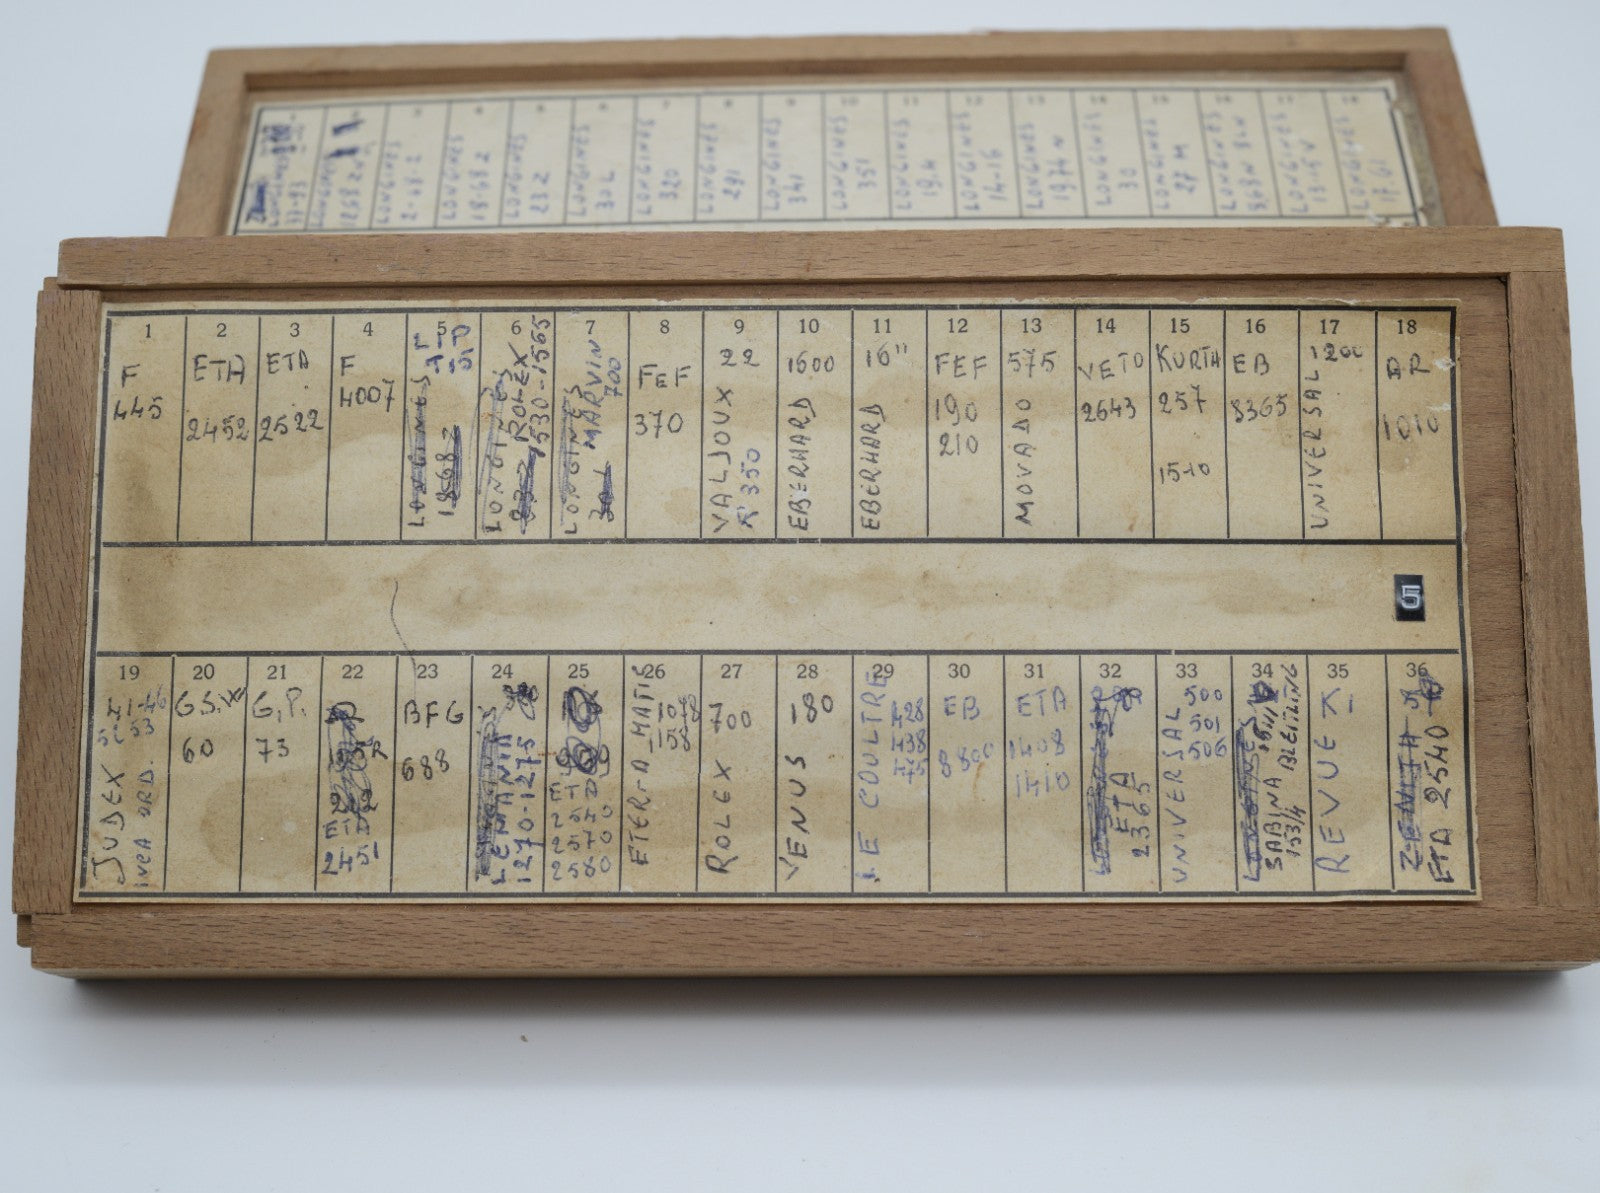 1 2 3 4 5 6 7 8 9 10 11 12 13 14 15 16 17 18
LONGINES
37-93
LONGINES
1268 ZN
LONGINES
LONGINES
1868 Z
LONGINES
23 Z
LONGINES
30 L
LONGINES
320
LONGINES
291
LONGINES
341
LONGINES
351
LONGINES
19.4
LONGINES
14-16
LONGINES
1974 N
LONGINES
30
LONGINES
27 M
LONGINES
LONGINES
LONGINES
1
F
445
2
ETA
2452
3
ETA
2522
4
F
4007
5
LONGINES
1868 Z
6
LONGINES
23 Z ROLEX
1530-1565
7
LONGINES
30 L MARVIN
700
8
FEF
370
9
22
VALJOUX
R 350
10
1600
EBERHARD
11
16"
EBERHARD
12
FEF
190
210
13
575
MOVADO
14
VETO
2643
15
KURTH
257
15-10
16
EB
8365
17
1200
UNIVERSAL
18
AR
1010
5
19
JUDEX
INCA ORD.
20
60
21
G.P.
73
22
ETA
2451
23
BFG
688
24
LEMANIA
1270-1275
25
ETA
2540
2570
2580
26
ETERNA-MATIC
27
700
ROLEX
28
180
VENUS
29
LE COULTRE
428
438
30
EB
8800
31
ETA
1408
1410
32
ETA
2365
33
500
501
506
UNIVERSAL
34
LONGINES
SABINA
153/4 BLEITLING
35
REVUE
36
ZENITH
ETA 2540